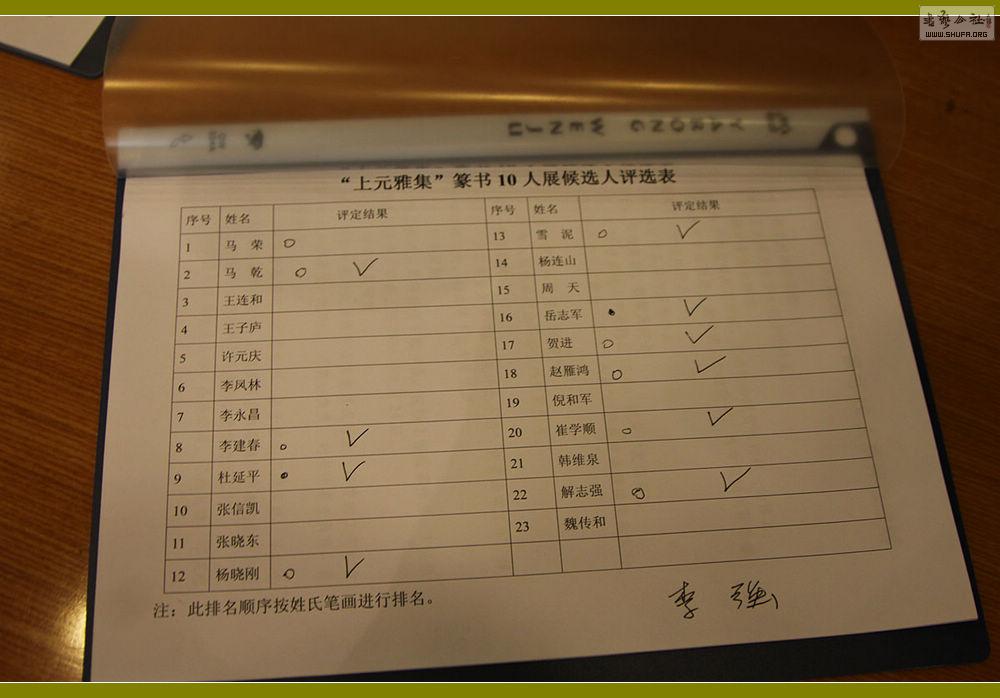 書藝公社
WWW.SHUFA.ORG
YARONG WENJU
“上元雅集”篆书10人展候选人评选表
序号 姓名 评定结果 序号 姓名 评定结果
1 马荣 ○ 13 雪泥 ○ ✓
2 马乾 ○ ✓ 14 杨连山
3 王连和 15 周天
4 王子庐 16 岳志军 ✓
5 许元庆 17 贺进 ○ ✓
6 李凤林 18 赵雁鸿 ○ ✓
7 李永昌 19 倪和军
8 李建春 ○ ✓ 20 崔学顺 ○ ✓
9 杜延平 ✓ 21 韩维泉
10 张信凯 22 解志强 ○ ✓
11 张晓东 23 魏传和
12 杨晓刚 ○ ✓
注：此排名顺序按姓氏笔画进行排名。
李强